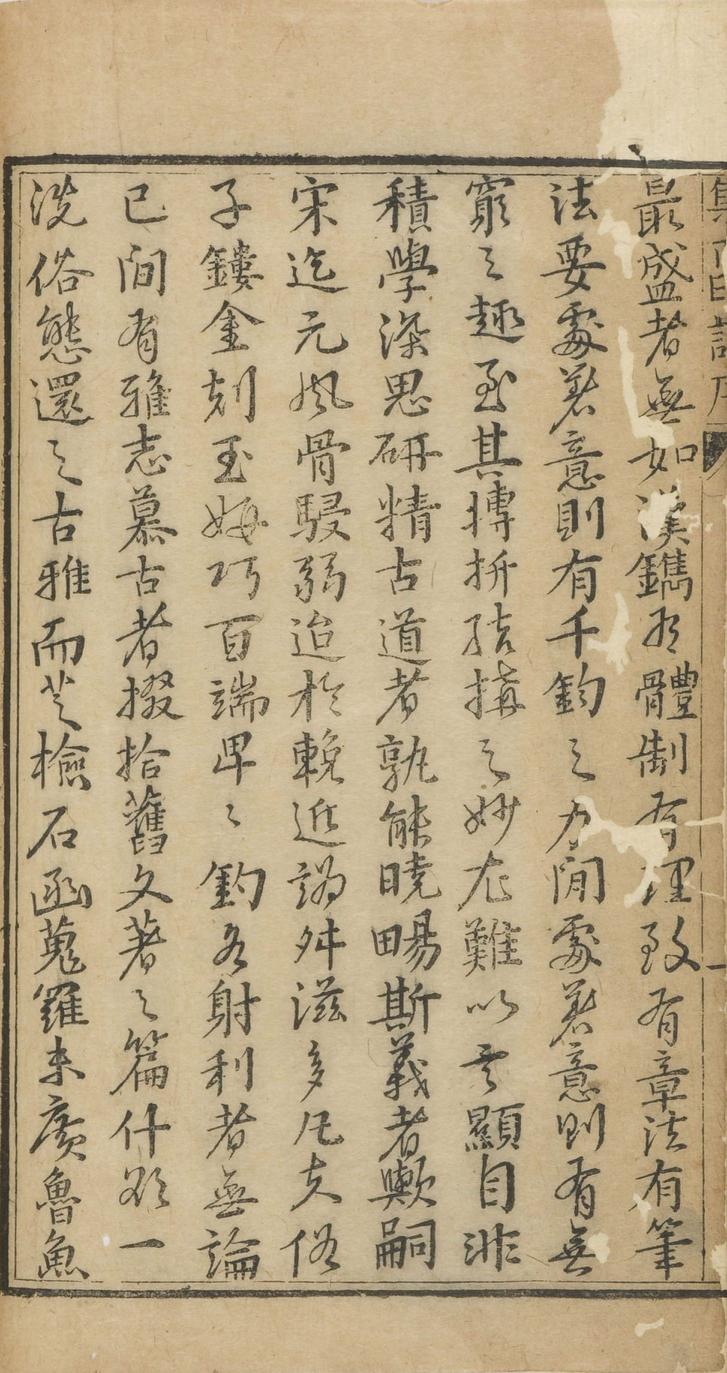 集古印譜序
一
最盛者無如漢鐫有體制有理致有章法有筆
法要處着意則有千鈞之力閒處着意則有無
窮之趣至其摶拆結搆之妙尤難以言顯自非
積學深思研精古道者孰能曉暢斯義者歟嗣
宋迄元風骨駸弱迨於輓近譌舛滋多凡夫俗
子鏤金刻玉媚巧百端畢〻釣名射利者無論
已間有雅志慕古者掇拾舊文著之篇什欲一
洗俗態還之古雅而芝檢石函蒐羅未廣魯魚